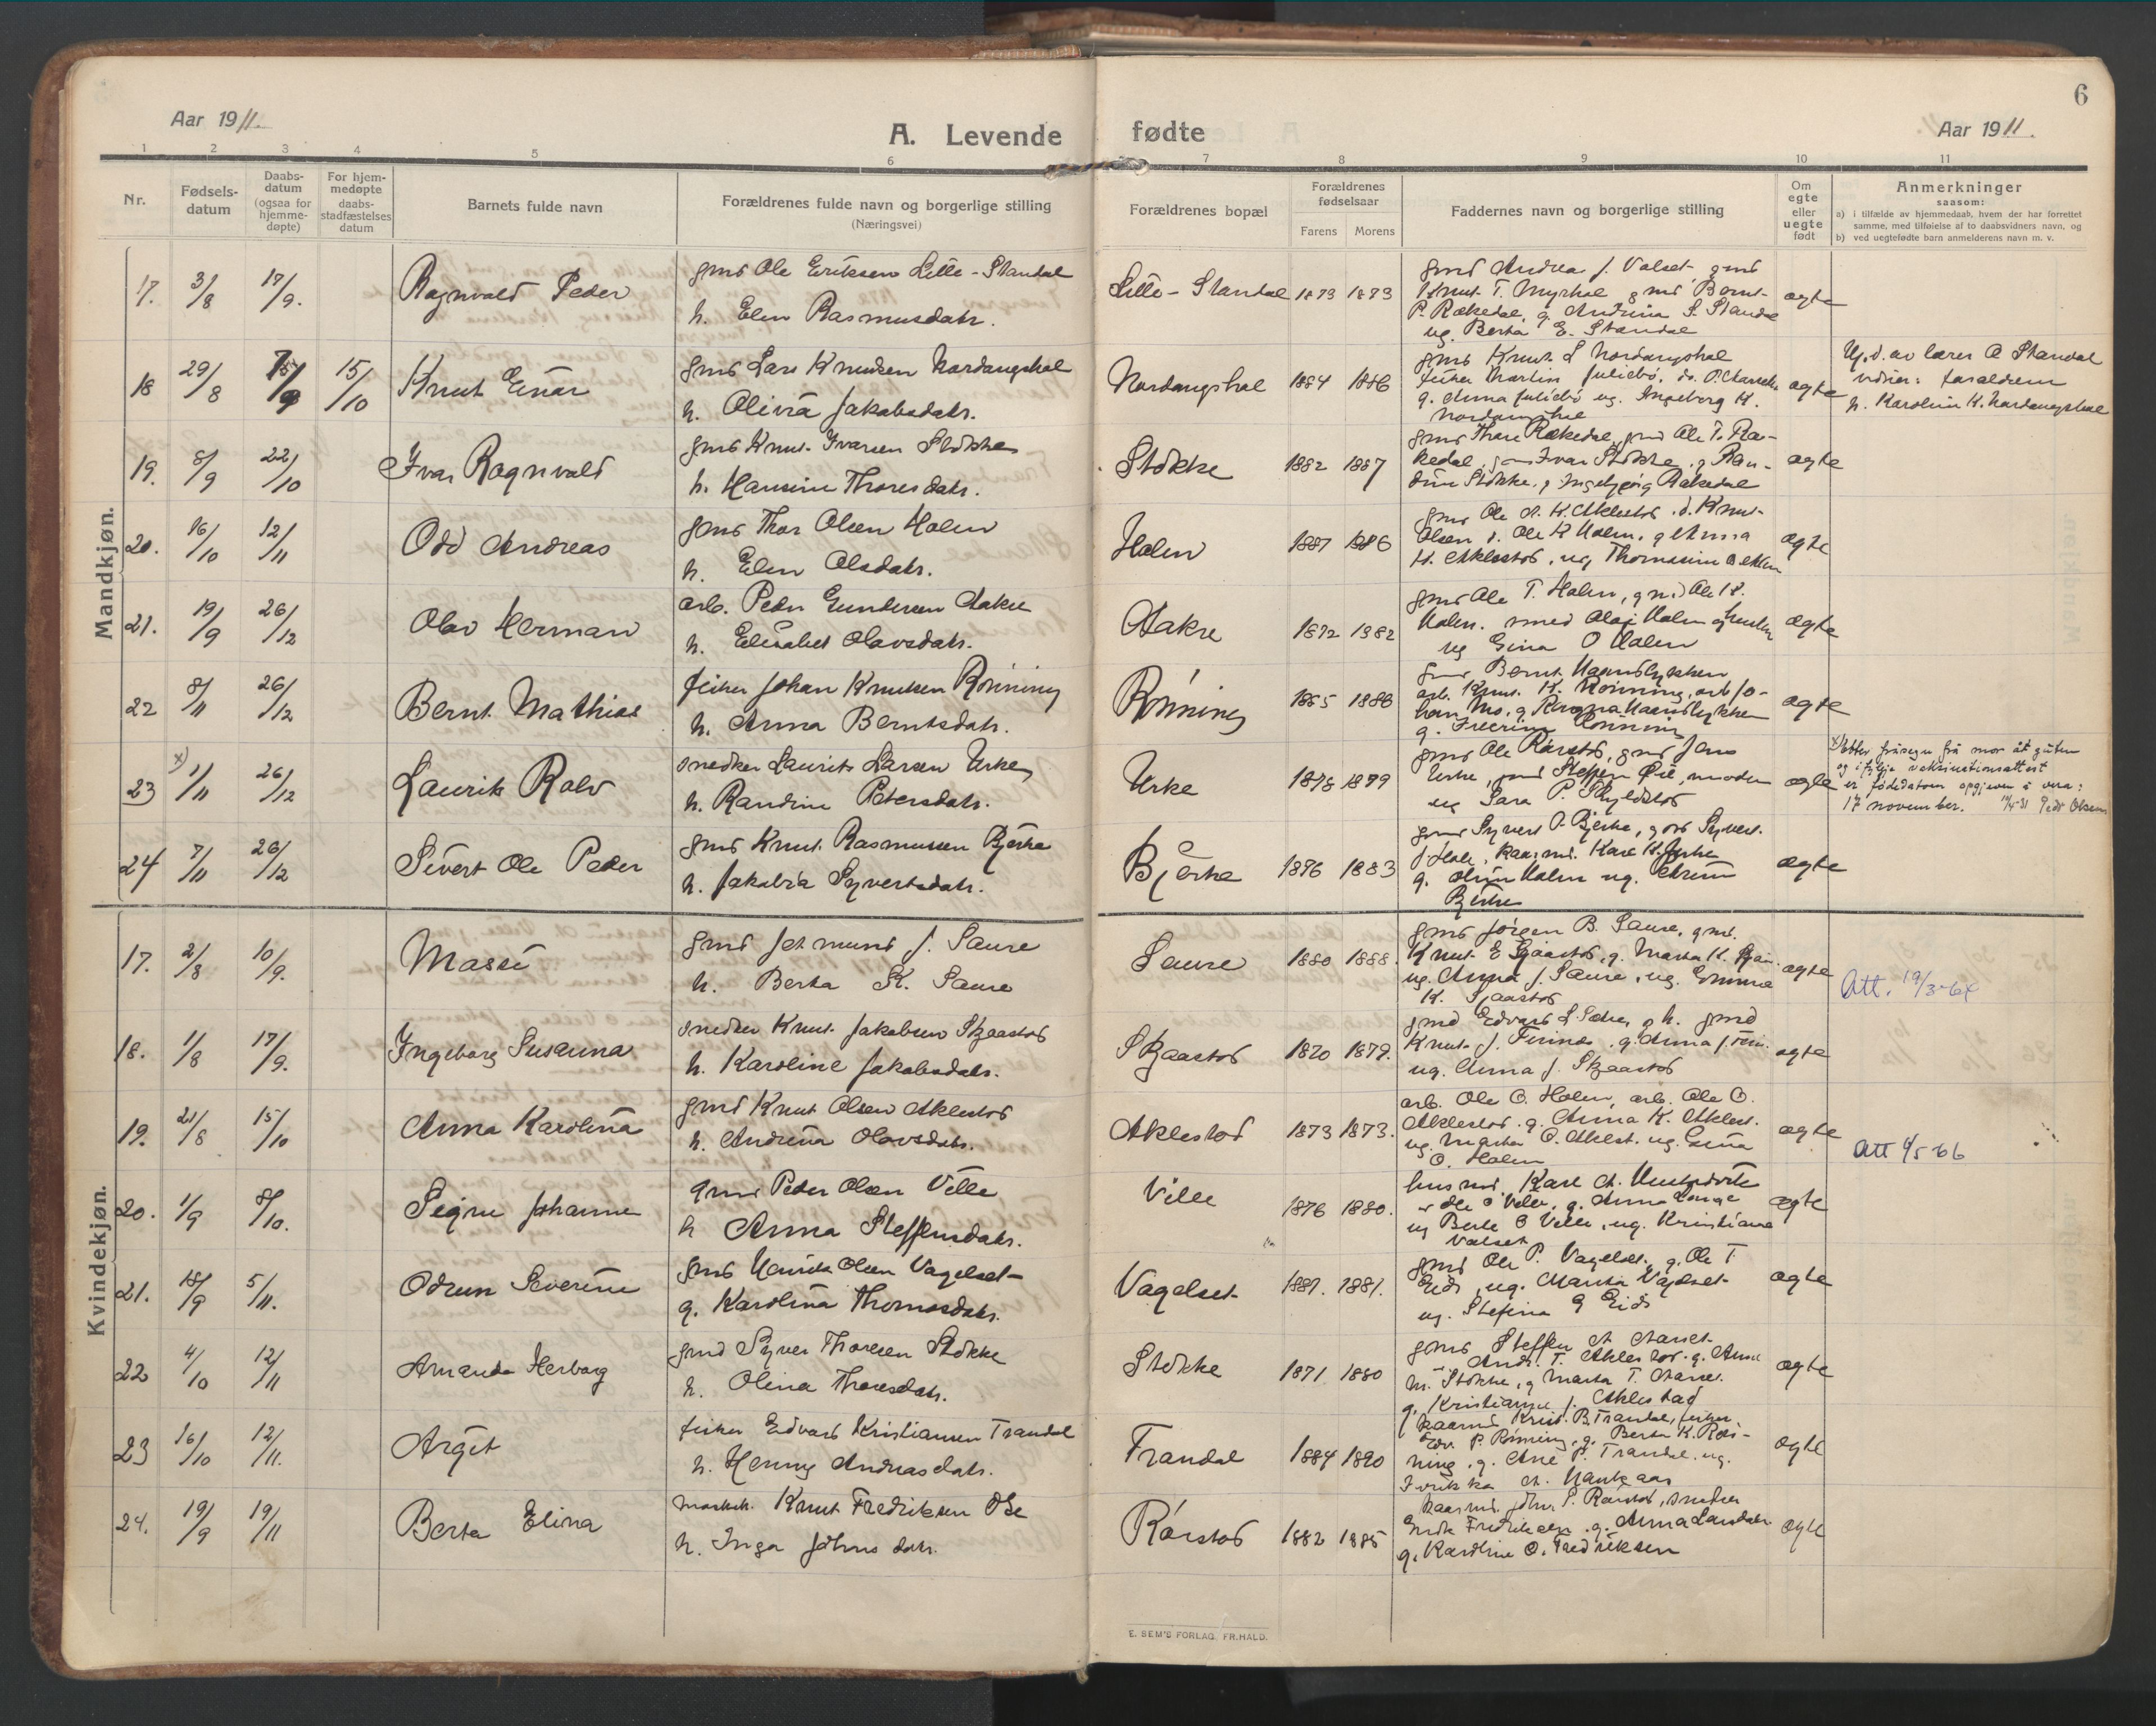 6
Aar 1911.
A. Levende fødte
Aar 1911.
1 2 3 4 5 6 7 8 9 10 11
Nr.
Fødsels-
datum
Daabs-
datum
(ogsaa for
hjemme-
døpte)
For hjem-
medøpte
daabs-
stadfæstelses
datum
Barnets fulde navn
Forældrenes fulde navn og borgerlige stilling
(Næringsvei)
Forældrenes bopæl
Forældrenes
fødselsaar
Farens Morens
Faddernes navn og borgerlige stilling
Om
egte
eller
uegte
født
Anmerkninger
saasom:
a) i tilfælde av hjemmedaab, hvem der har forrettet
samme, med tilføielse af to daabsvidners navn, og
b) ved uegtefødte barn anmelderens navn m. v.
Mandkjøn.
17. 3/8 17/9. Ragnvald Peder
gmd Ole Eriksen Lille-Standal
h. Elen Rasmusdatr.
Lille-Standal 1873 1873
gmd Andreas J. Valset gmd
Knut T. Myrhol gmd Bernt
P. Rækedal, g. Andrina S. Standal
ug. Berta E. Standal
ægte
18 29/8 15/10 Knut Einar
gmd Lars Knudsen Nordangshol
h. Olivia Jakobsdatr.
Nordangshol 1884 1886
gmd Knut L Nordangshol
fisker Martin
g. Anna ug. Ingeborg K.
Nordangshol
ægte
Hj.d. av lærer O Standal
vidner: foraldrene
h. Karolin K. Nordangshol
19. 8/9 22/10 Ivar Ragnvald
gmd Knut Ivarsen Stokke
h. Hansine Thoresdatr.
Stokke 1882 1887
gmd Thore Rækedal, gmd Ole T. Ræ-
kedal, gm Ivar Stokke, g Ran-
dine Stokke, g Ingebjørg Rækedal
ægte
20. 16/10 12/11 Odd Andreas
gmd Thor Olsen Holen
h. Elen Olsdatr.
Holen 1887 1886
gmd Ole A. K. Aklestod d. Knut
Olsen d. Ole K Holen, g Anna
K. Aklestod, ug Thomasine
ægte
21. 19/9 26/12 Olav Herman
arb. Peder Gundersen Aakre
h. Elisabet Olavsdatr.
Aakre 1872 1882
gmd Ole T. Holen, gmd Ole K.
Holen. smed Olaf Holen og
ug Gina O Holen
ægte
22 8/11 26/12 Bernt Mathias
fisker Johan Knutsen Rönning
h. Anna Berntsdatr.
Rönning 1885 1886
gmd Bernt Haandlykken
arb. Knut K. Rönning, arb Jo-
han Mo, g Ragna Haandlykken
g. Rönning
ægte
23 x) 1/11 26/12 Laurits Rolv
snedker Laurits Larsen Urke
h. Randine Petersdatr.
Urke 1878 1879
gmd Ole Rørstod, gmd Jens
Urke, gmd Steffen Øie, moderen
ug Sara P. Skylstad
ægte
x) Etter fråsegn frå mor åt guten
og ifylgje vaksinationsattest
er födsdatoen opgjeven å vera:
17 november. Peder Olsen
24 7/11 26/12 Sivert Ole Peder
gmd Knut Rasmussen Bjerke
h. Jakobia Syvertsdatr.
Bjerke 1876 1883
gmd Syvert P. Bjerke, gmd Syvert
J Hole, kaarmd. Karl K. Bjerke
g. Holen ug.
Bjerke
ægte
Kvindekjøn.
17. 2/8 10/9. Massi
gmd Jetmund J. Saure
h. Berta K. Saure
Saure 1880 1888.
gmd Jørgen B. Saure, gmd.
Knut E Sjaastod, g. Marta K.
ug. Anna J. Saure, ug. Emma
K. Sjaastod
ægte
Att. 19/3-64
18. 1/8 17/9. Ingeborg Susanna
snedker Knut Jakobsen Skjaastod
h. Karoline Jakobsdatr.
Skjaastod 1870 1879.
gmd Edvard L Sætre, g h. gmd
Knut J. Finnes, g. Anna J.
ug. Anna J. Skjaastod
ægte
19. 21/8 15/10 Anna Karolina
gmd Knut Olsen Aklestod
h. Andrina Olavsdatr.
Aklestod 1873 1873.
arb. Ole O. Holen, arb. Ole O.
Aklestod. g. Anna K. Aklest.
ug. Marta O. Aklest. ug. Gina
O. Holen
ægte
Att 4/5-66
20. 1/9 8/10. Signe Johanne
gmd Peder Olsen Velle
h Anna Steffensdatr.
Ville 1876 1880.
husmd Karl A.
Ole O Velle, g. Anna Lange
ug Berte O Velle, ug. Kristiane
Valset
ægte
21. 18/9 5/11. Odrun Severine
gmd Henrik Olsen Vagelset
g. Karolina Thomasdatr.
Vagelset 1881. 1881.
gmd Ole P. Vagelset, g. Ole T
Eid, ug. Marta Vagelset
ug. Stefina G Eid
ægte
22 4/10 12/11 Amanda Herborg
gmd Syver Thoresen Stokke
h. Olina Thoresdatr.
Stokke 1871 1880
gmd Steffen A Aarset
Andr. T. Aklestod. g. Anna
M. Stokke, g Marta T. Aarset.
g. Kristianne J. Aklestad
ægte
23 16/10 12/11. Argit
fisker Edvard Kristiansen Trandal
h. Henny Andreasdatr.
Trandal 1884 1890
kaarmd Krist. B. Trandal, fisker
Edv. P. Rönning, g. Berta K. Rön-
ning, g. Ane P. Trandal. ug.
ægte
24. 19/9 19/11 Berta Elina
Knut Fredriksen Øie
h. Inga Johns datr.
Rørstod 1882 1885
kaarmd. John S. Rørstod, snedker
Fredriksen. g. Anna
g. Karoline O. Fredriksen
ægte
E. SEM'S FORLAG, FR.HALD.